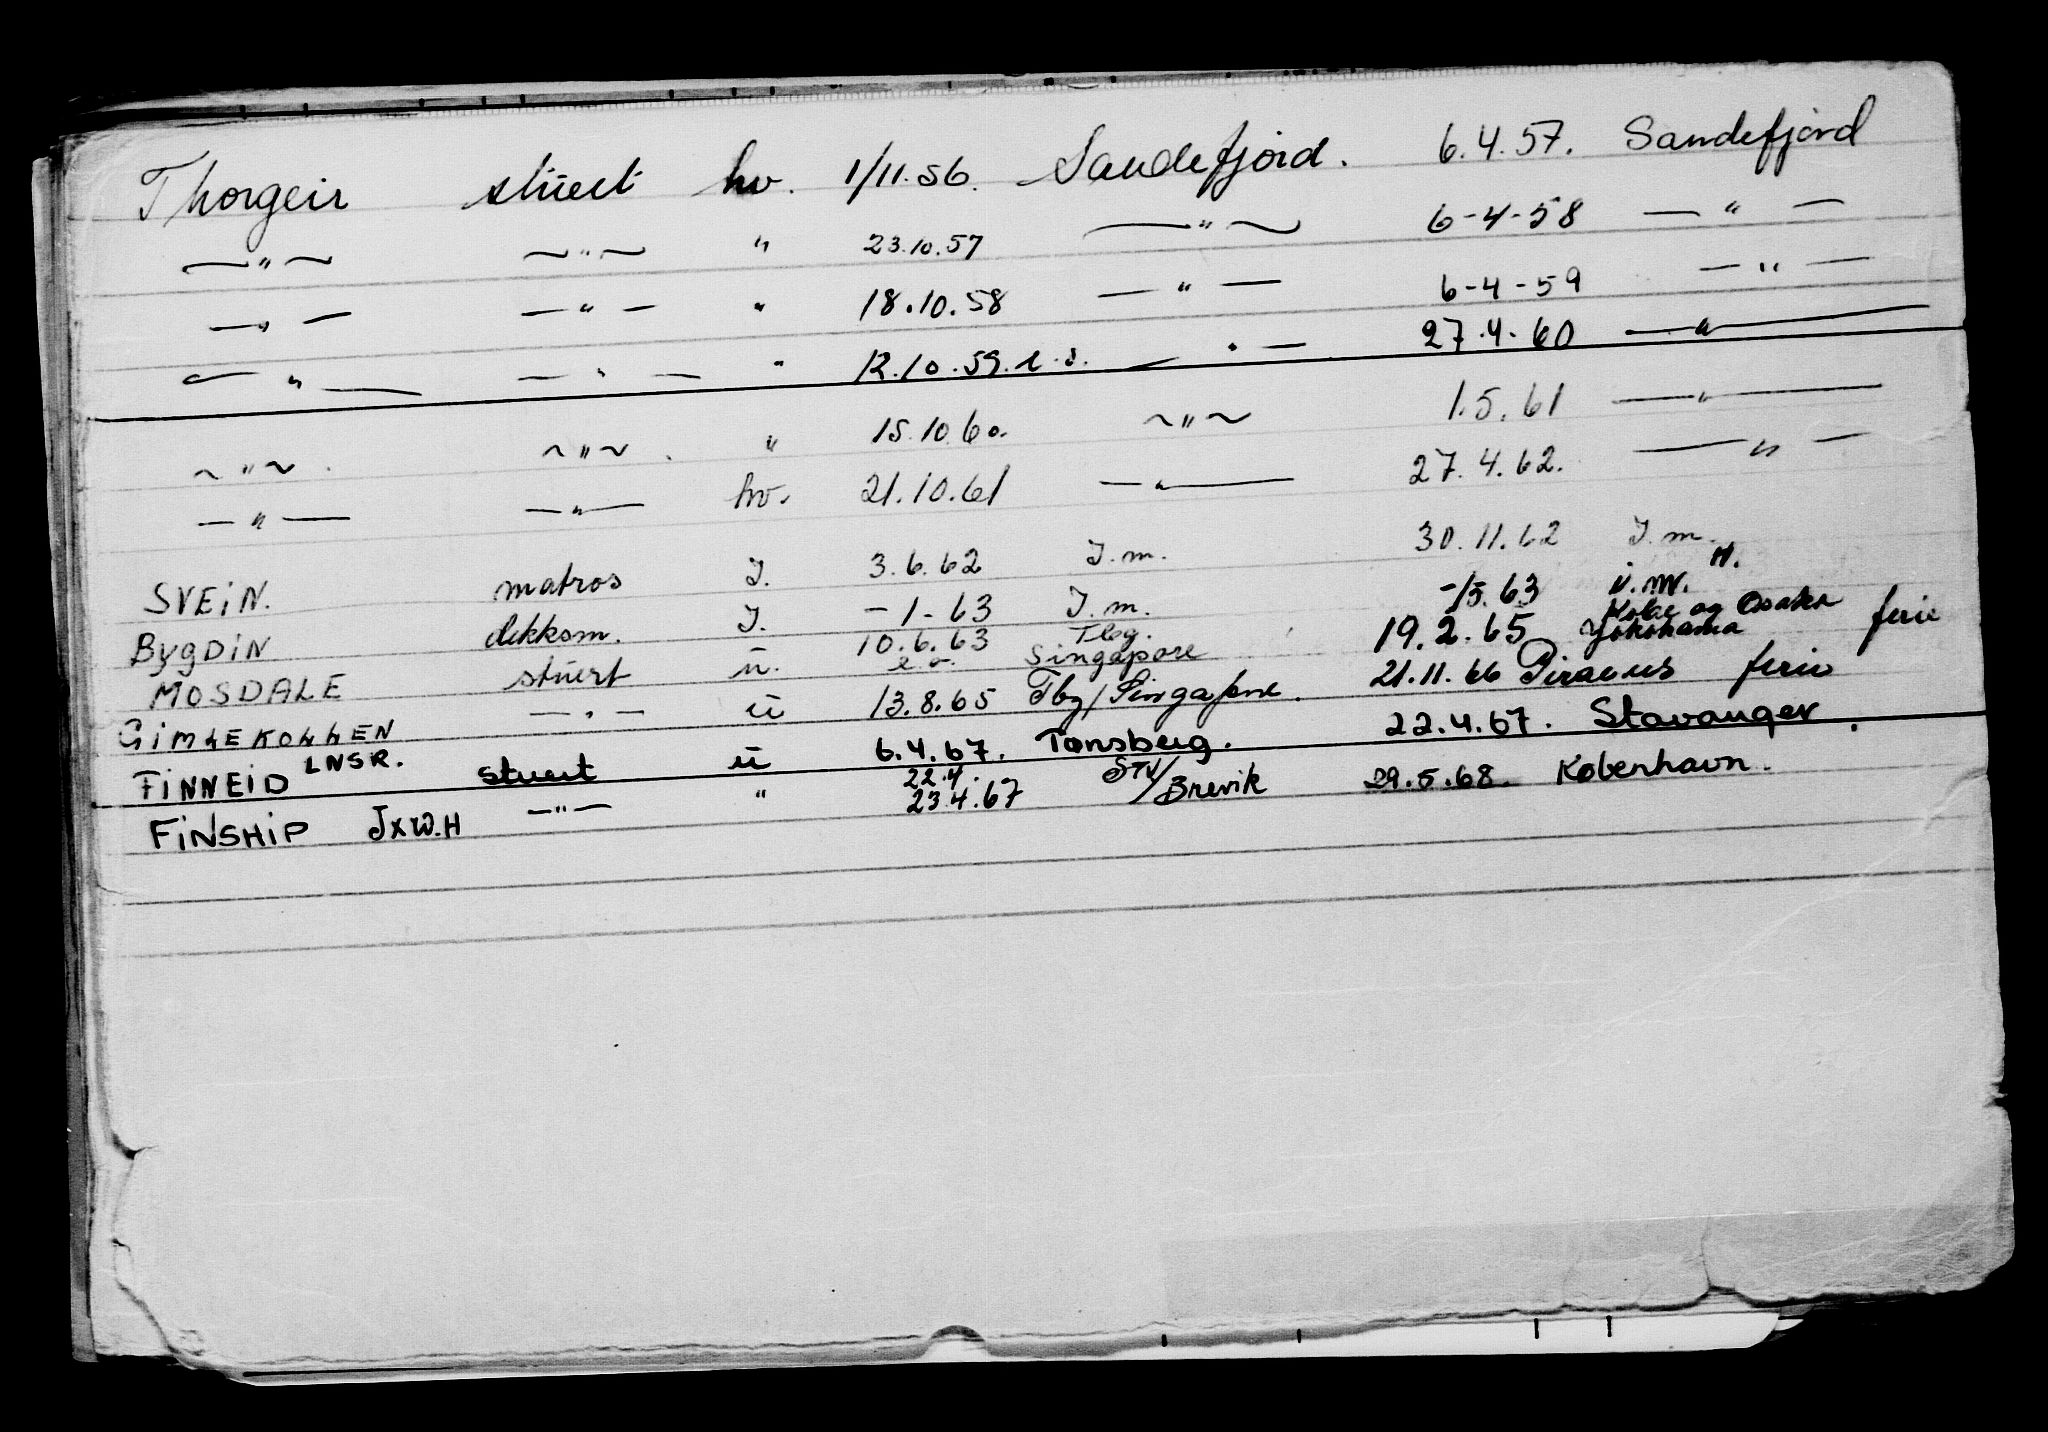 Thorgeir stuert hv. 1/11.56. Sandefjord. 6.4.57. Sandefjord
— " — — " — " 23.10.57 — " — 6-4-58 — " —
— " — — " — " 18.10.58 — " — 6-4-59 — " —
— " — — " — " 12.10.59. — " — 27.4.60 — " —
— " — — " — " 15.10.60. — " — 1.5.61 — " —
— " — — " — hv. 21.10.61 — " — 27.4.62. — " —
SVEIN. matros J. 3.6.62 J.m. 30.11.62 J.m.
BYGDIN dekksm. J. -1-63 J.m. -/5.63 i.m.
MOSDALE stuert u. 10.6.63 e.o. Tbg. Singapore 19.2.65 Kobe og Osaka Yokohama ferie
GIMLEKOLLEN — " — u 13.8.65 Tbg/Singapore. 21.11.66 Piraeus ferie
FINNEID LNSR. stuert u 6.4.67. Tønsberg. 22.4.67. Stavanger.
FINSHIP JXW.H — " — " 22.4. 23.4.67 STV/Brevik 29.5.68. København.